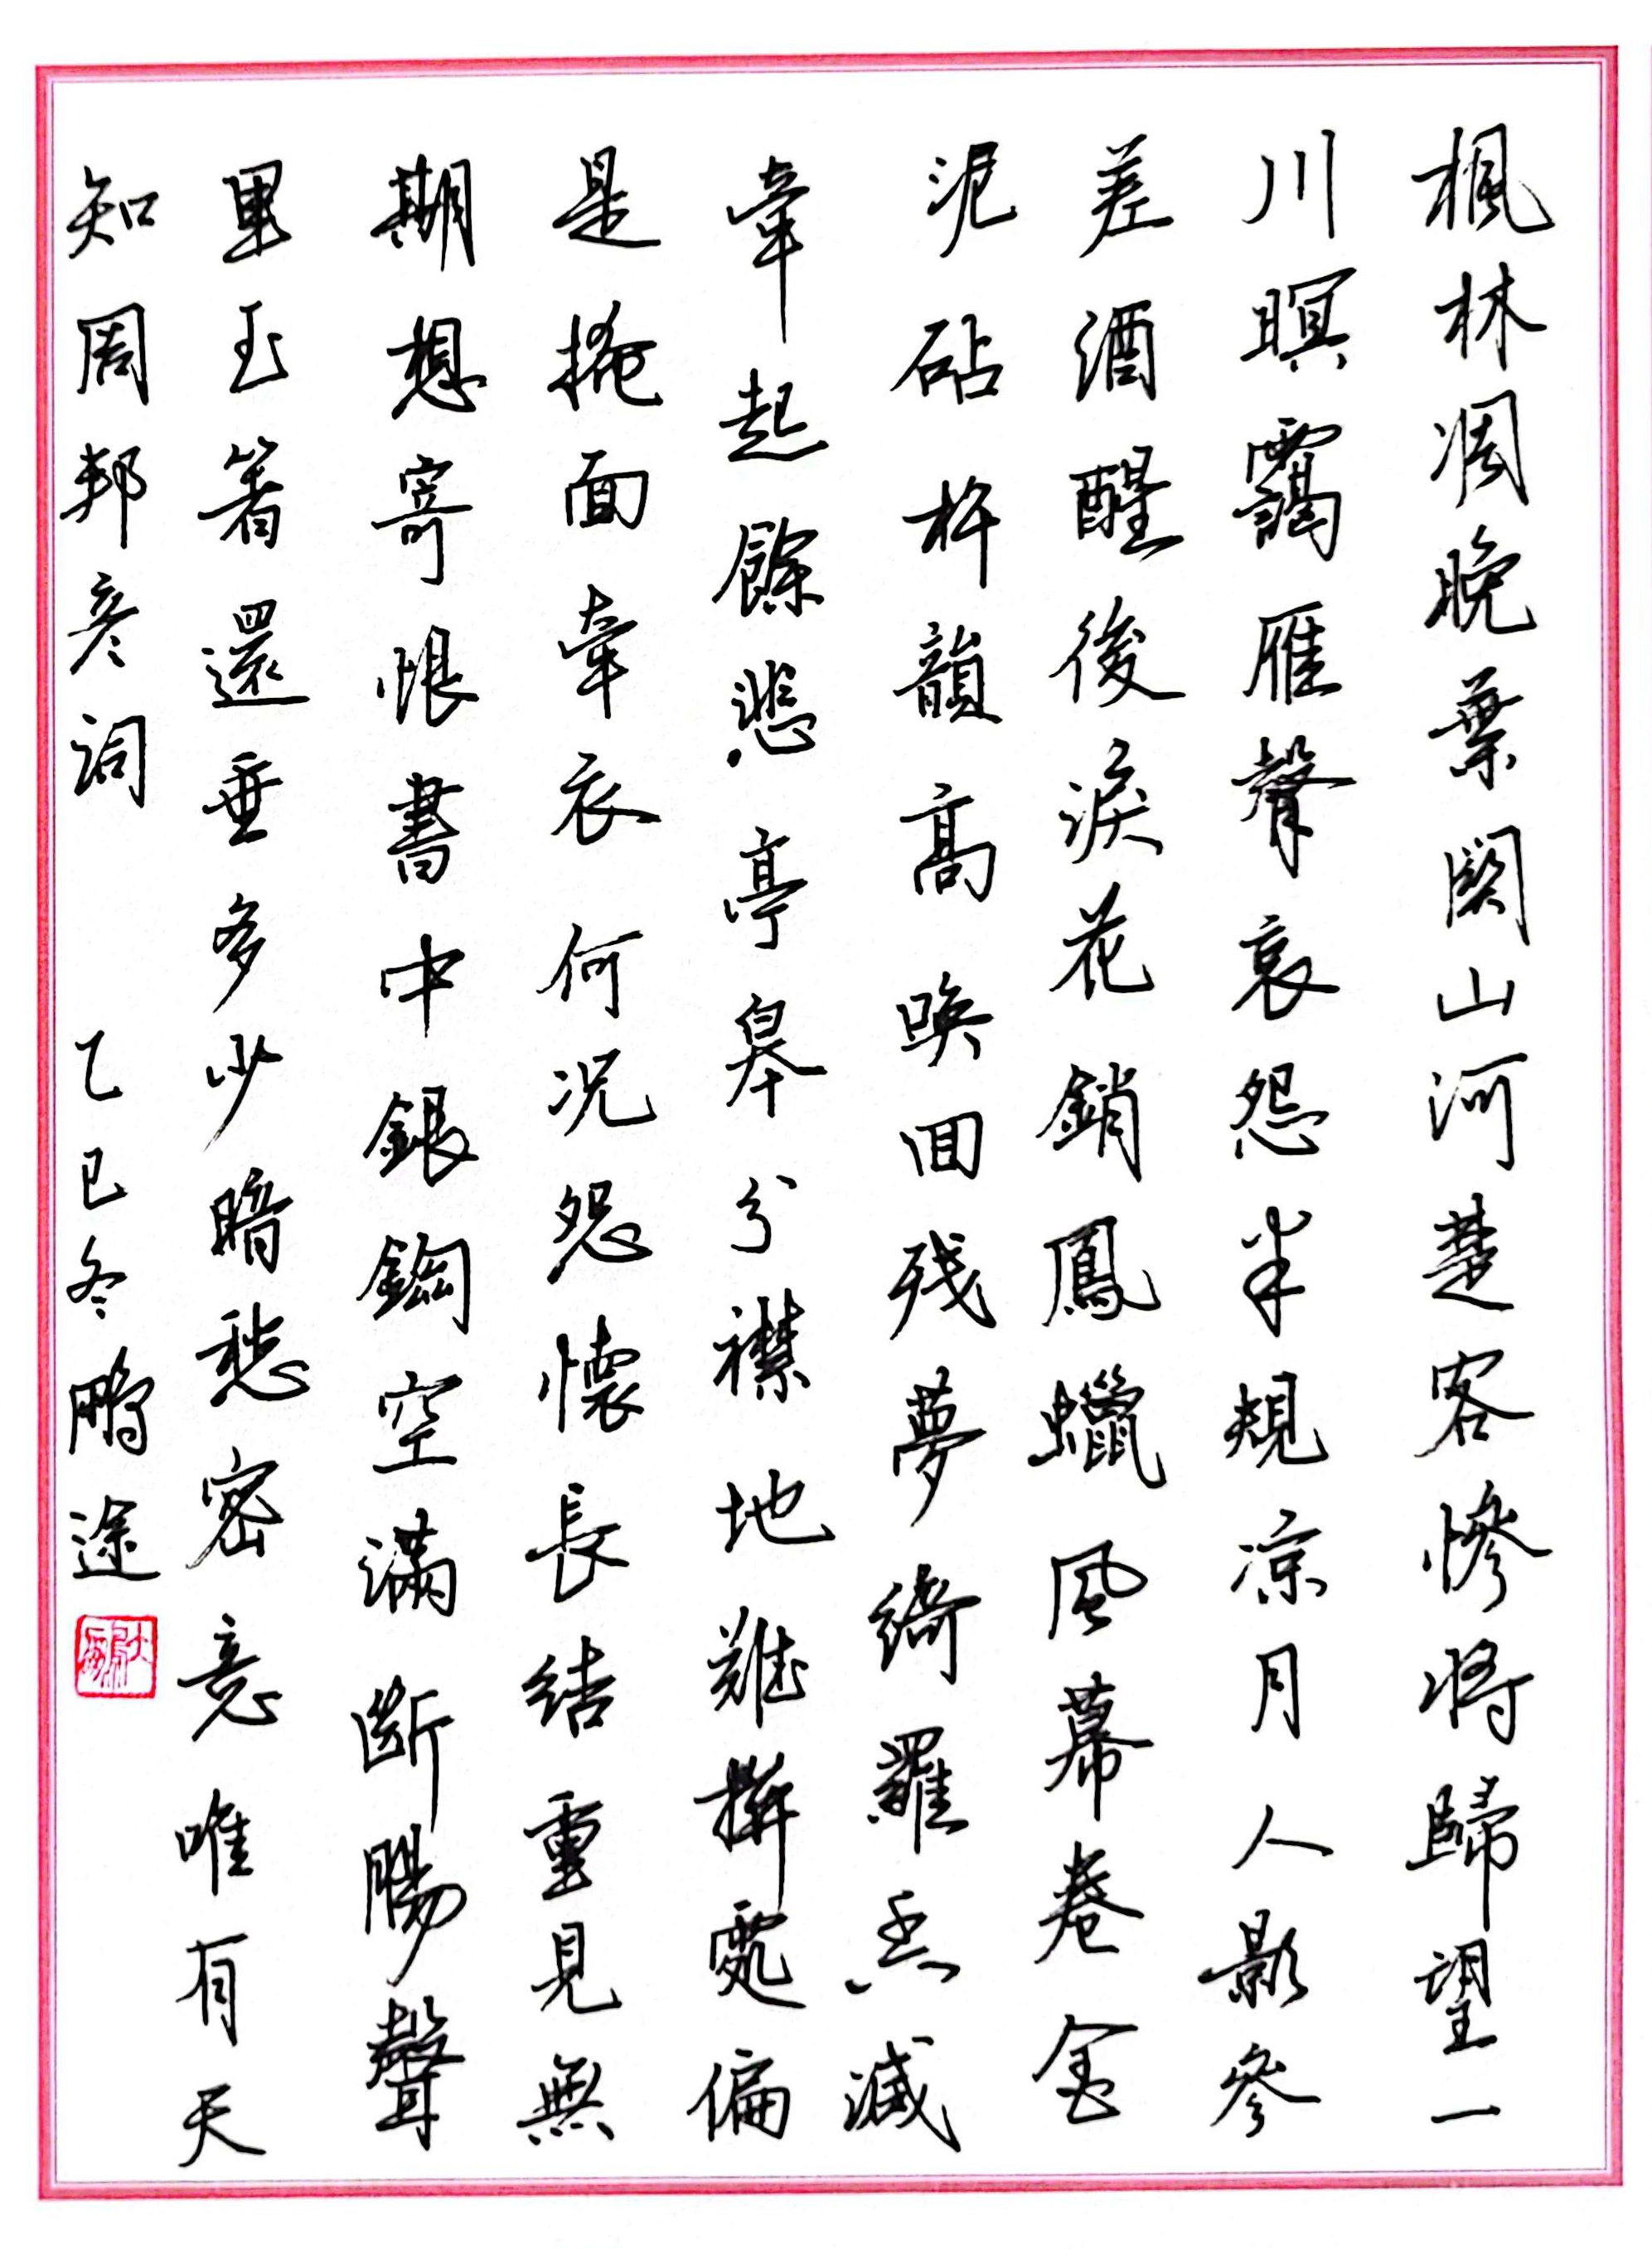 楓林凋晚葉関山河楚客慘將歸望一
川暝靄雁聲哀怨半規凉月人影參
差酒醒後淚花銷鳳蠟風幕卷金
泥砧杵韻高唤回残夢綺羅香减
牽起餘悲亭皋分襟地難拚處偏
是掩面牽衣何况怨懷長結重見無
期想寄恨書中銀鈎空滿斷腸聲
里玉箸還垂多少暗愁密意唯有天
知周邦彦詞 乙巳冬鹏途